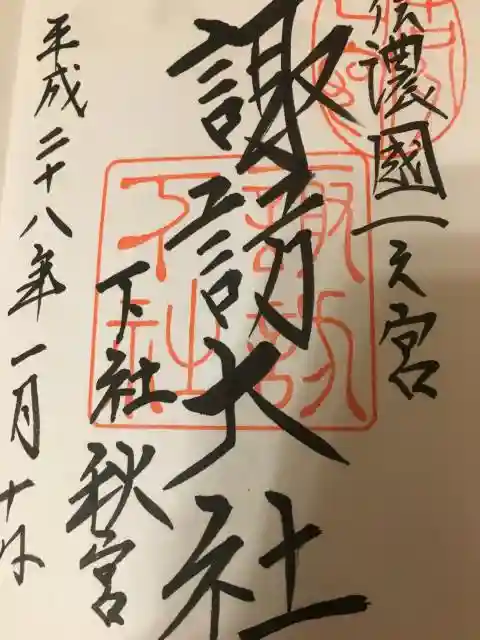 信濃國一之宮
諏訪大社
下社 秋宮
平成二十八年一月十
諏訪
下社